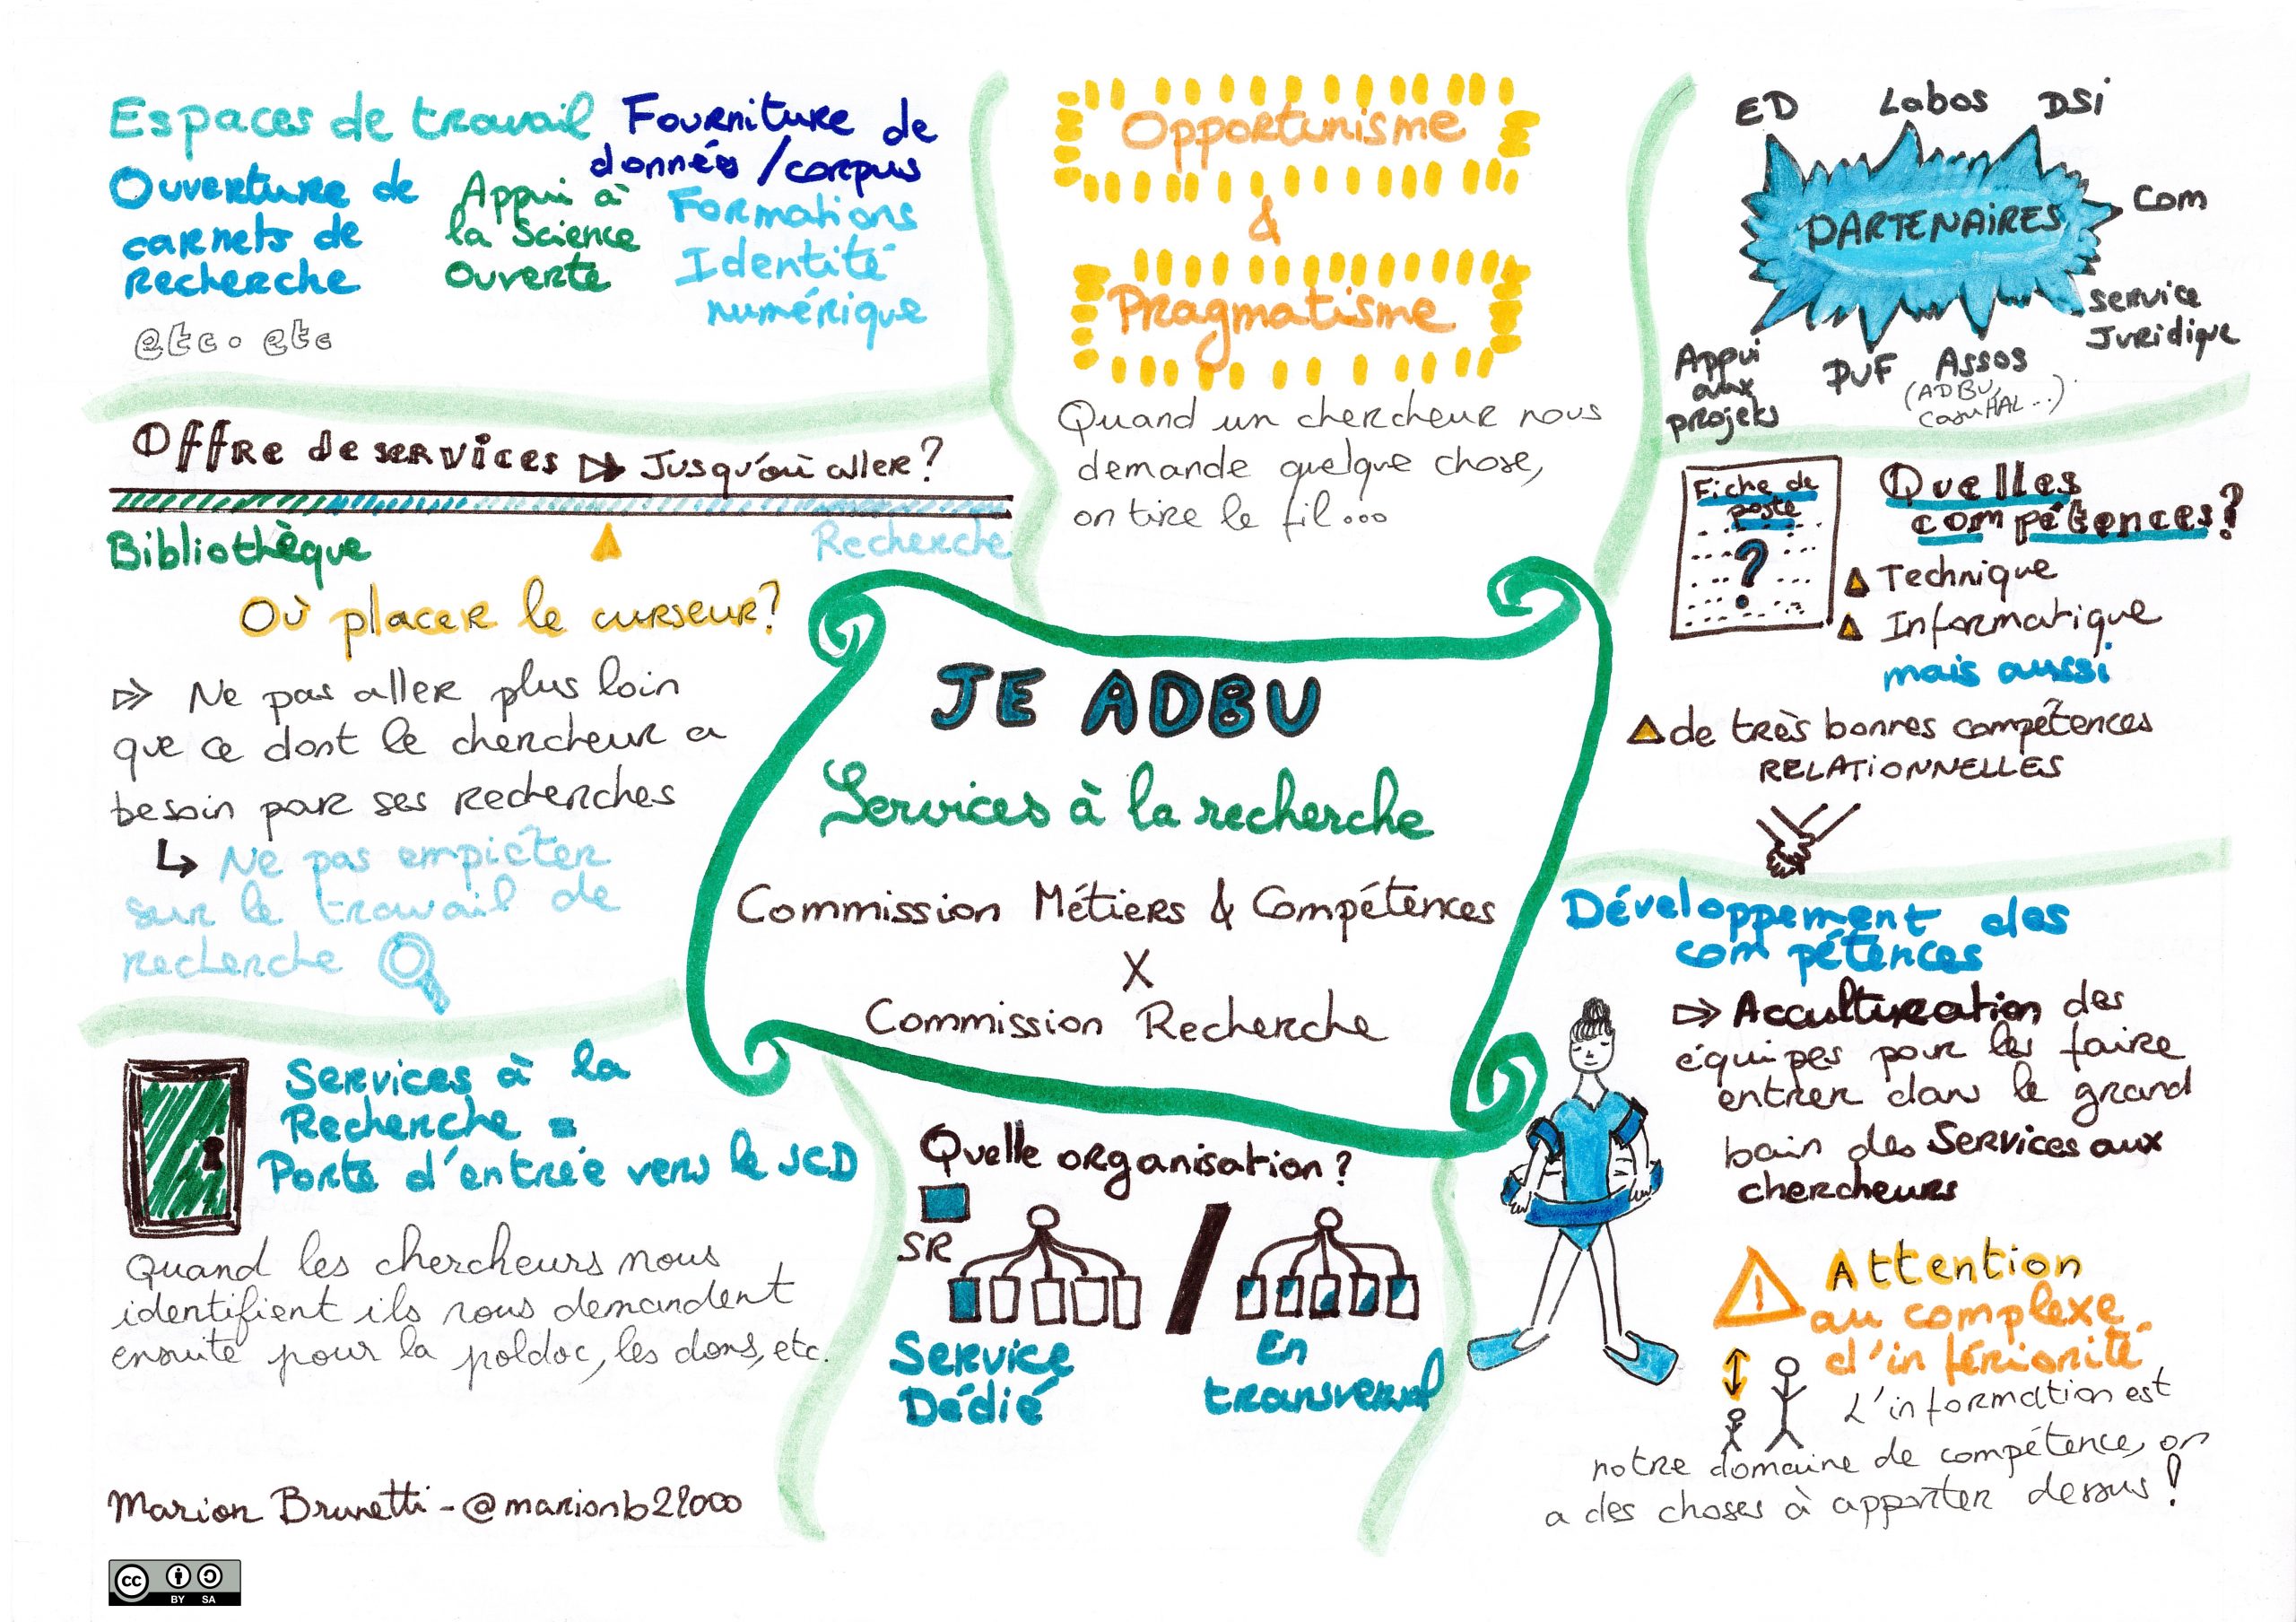 Espaces de travail
Fourniture de
données / corpus
Ouverture de
carnets de
recherche
Appui à
la Science
Ouverte
Formations
Identité
numérique
etc. etc
Offre de services ▷ Jusqu'où aller ?
Bibliothèque
Recherche
Où placer le curseur ?
Ne pas aller plus loin
que ce dont le chercheur a
besoin par ses recherches
↳ Ne pas empiéter
sur le travail de
recherche
Services à la
Recherche =
Porte d'entrée vers le SCD
Quand les chercheurs nous
identifient ils nous demandent
ensuite pour la poldoc, les dons, etc.
Marion Brunetti - @marionb21000
cc BY SA
Opportunisme
&
Pragmatisme
Quand un chercheur nous
demande quelque chose,
on tire le fil...
JE ADBU
Services à la recherche
Commission Métiers & Compétences
X
Commission Recherche
Quelle organisation ?
SR
Service
Dédié
/
En
transversal
ED
Labos
DSi
PARTENAIRES
Com
Service
Juridique
Appui
aux
projets
PUF
Assos
(ADBU,
CasuHAL...)
Fiche de
poste
?
Quelles
compétences ?
Technique
Informatique
mais aussi
de très bonnes compétences
RELATIONNELLES
Développement des
compétences
Acculturation des
équipes pour les faire
entrer dans le grand
bain des Services aux
chercheurs
Attention
au complexe
d'infériorité
L'information est
notre domaine de compétence, on
a des choses à apporter dessus !